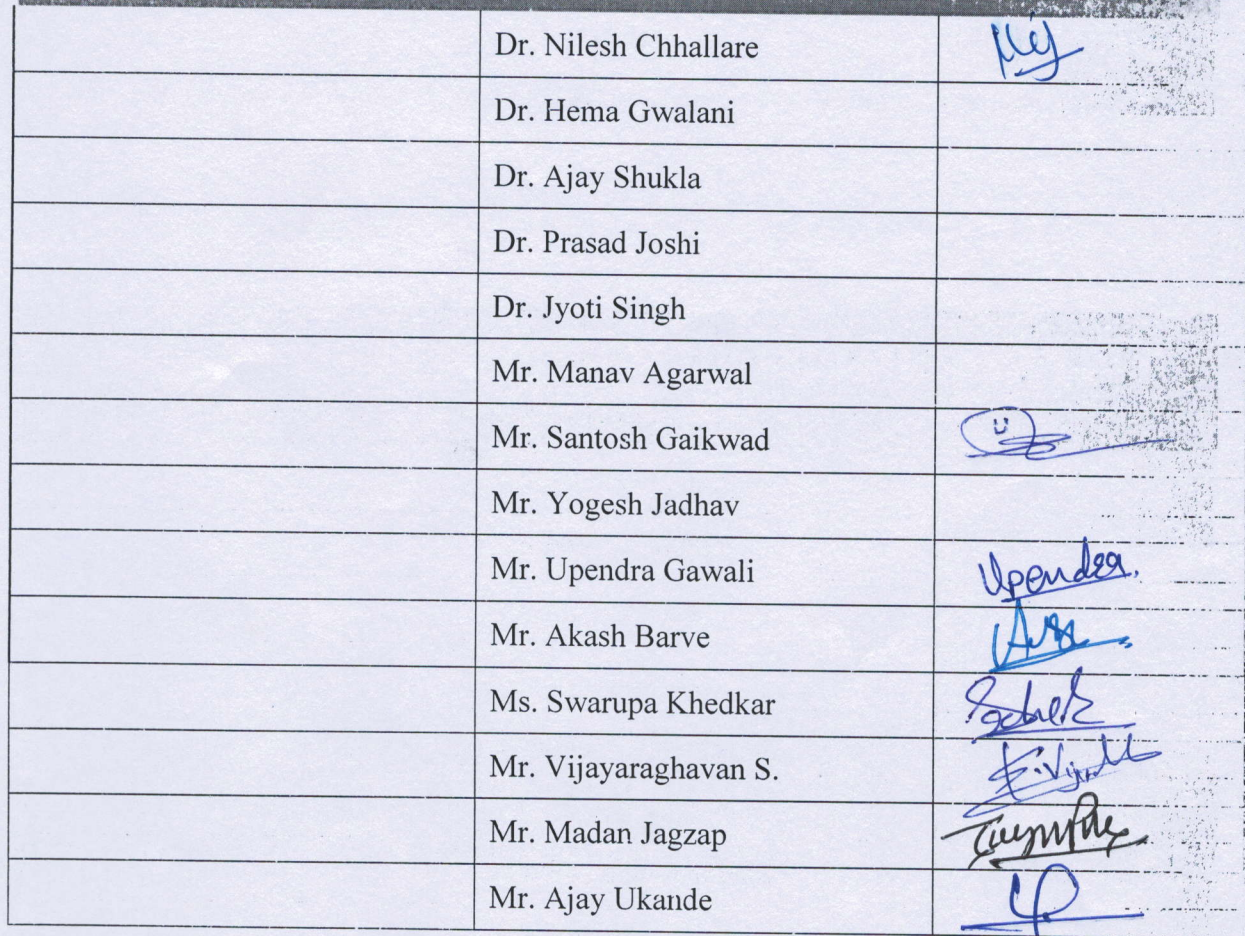 Dr. Nilesh Chhallare
Dr. Hema Gwalani
Dr. Ajay Shukla
Dr. Prasad Joshi
Dr. Jyoti Singh
Mr. Manav Agarwal
Mr. Santosh Gaikwad
Mr. Yogesh Jadhav
Mr. Upendra Gawali Upendra.
Mr. Akash Barve
Ms. Swarupa Khedkar
Mr. Vijayaraghavan S.
Mr. Madan Jagzap
Mr. Ajay Ukande